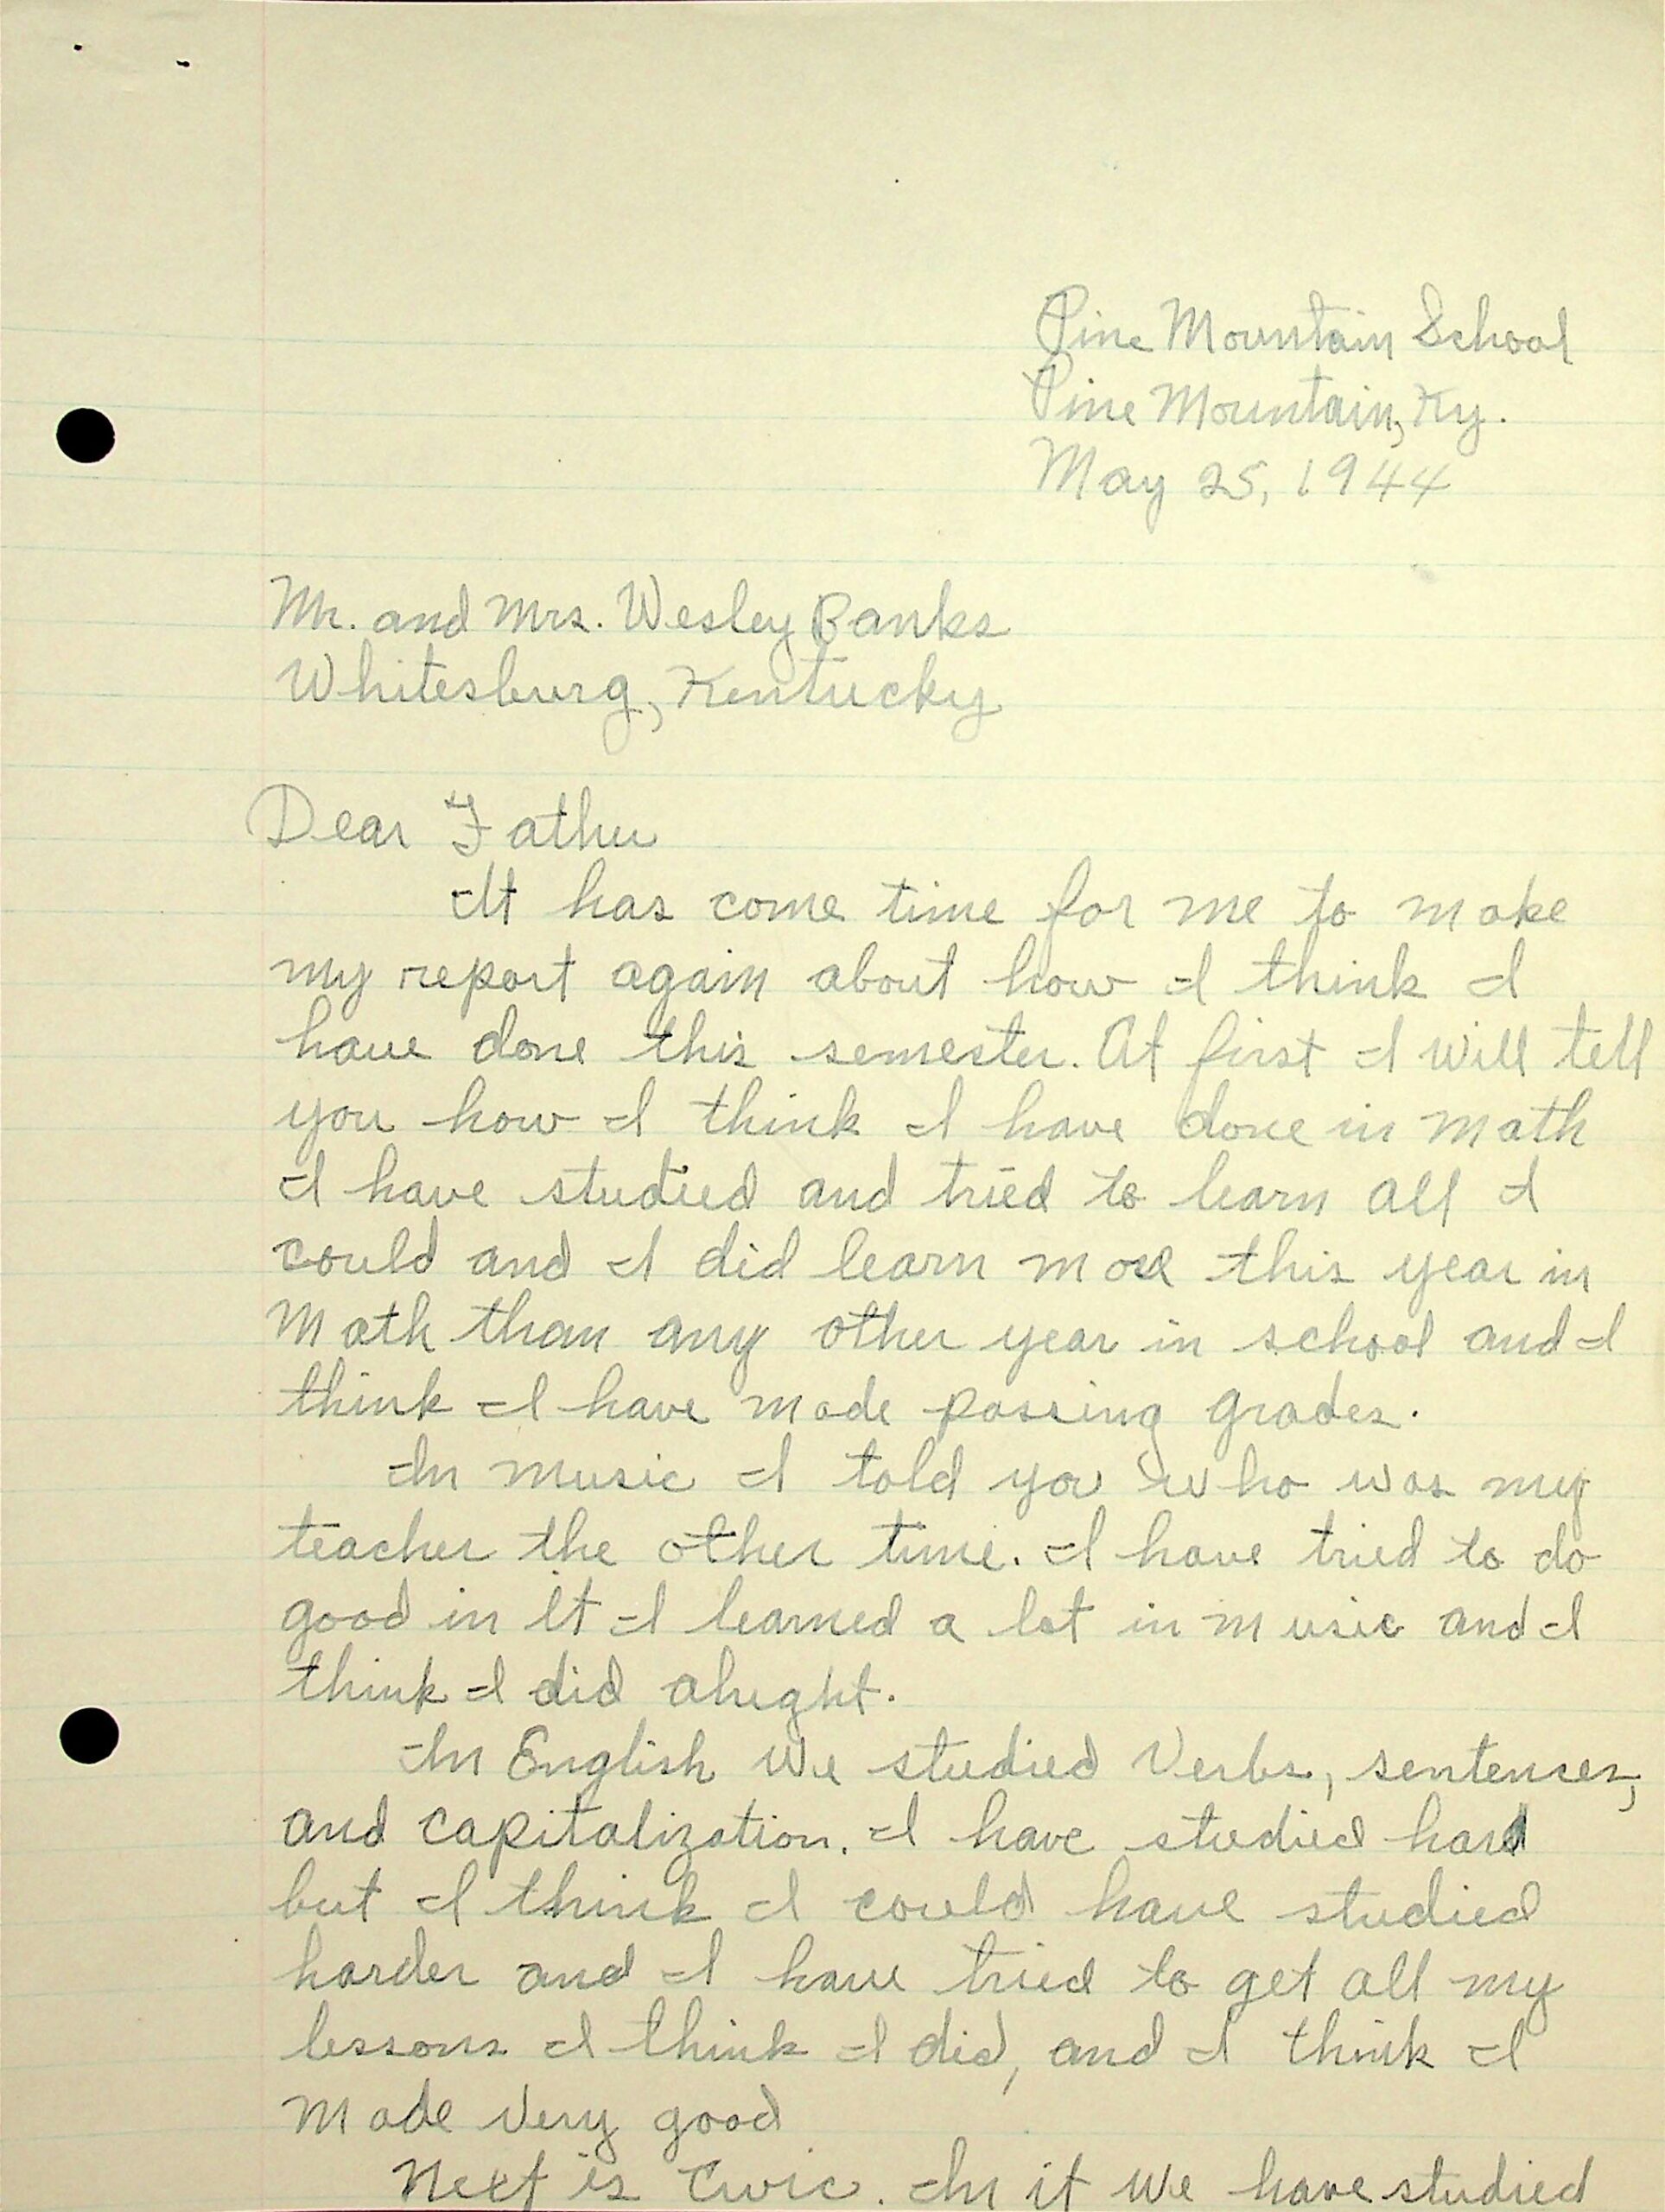 Pine Mountain School
Pine Mountain, Ky.
May 25, 1944
Mr. and Mrs. Wesley Banks
Whitesburg, Kentucky
Dear Father
It has come time for me to make
my report again about how I think I
have done this semester. At first I will tell
you how I think I have done in math
I have studied and tried to learn all I
could and I did learn more this year in
Math than any other year in school and I
think I have made passing grades.
In music I told you who was my
teacher the other time. I have tried to do
good in it I learned a lot in music and I
think I did alright.
In English We studied Verbs, sentenses,
and capitalization. I have studied hard
but I think I could have studied
harder and I have tried to get all my
lessons I think I did, and I think I
made very good
Next is Civic. In it We have studied